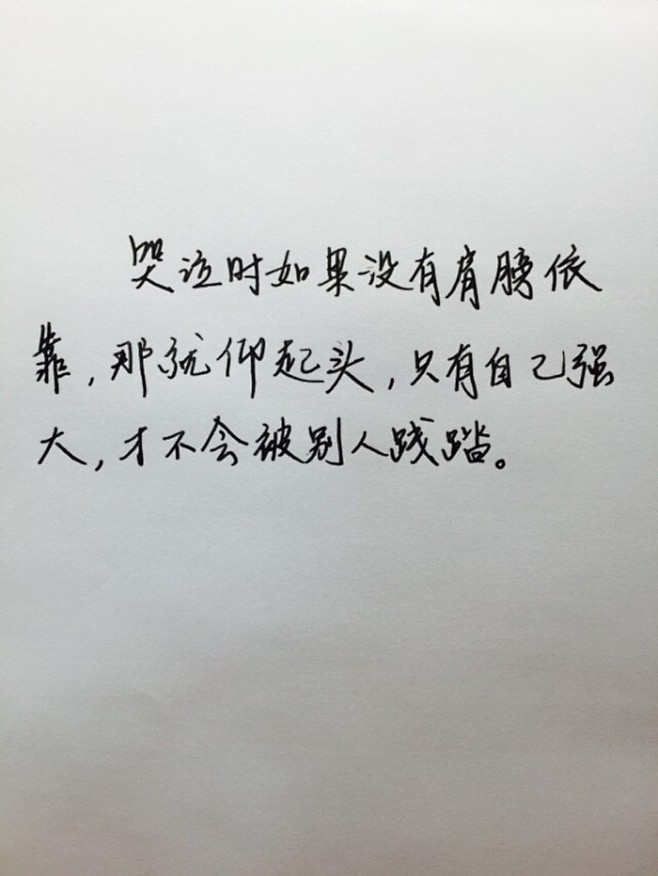 哭泣时如果没有肩膀依
靠,那就仰起头,只有自己强
大,才不会被别人践踏。